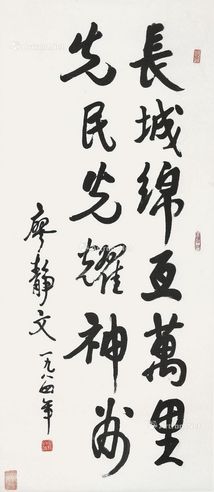 長城綿亙萬里
先民光耀神州
廖靜文一九八四年